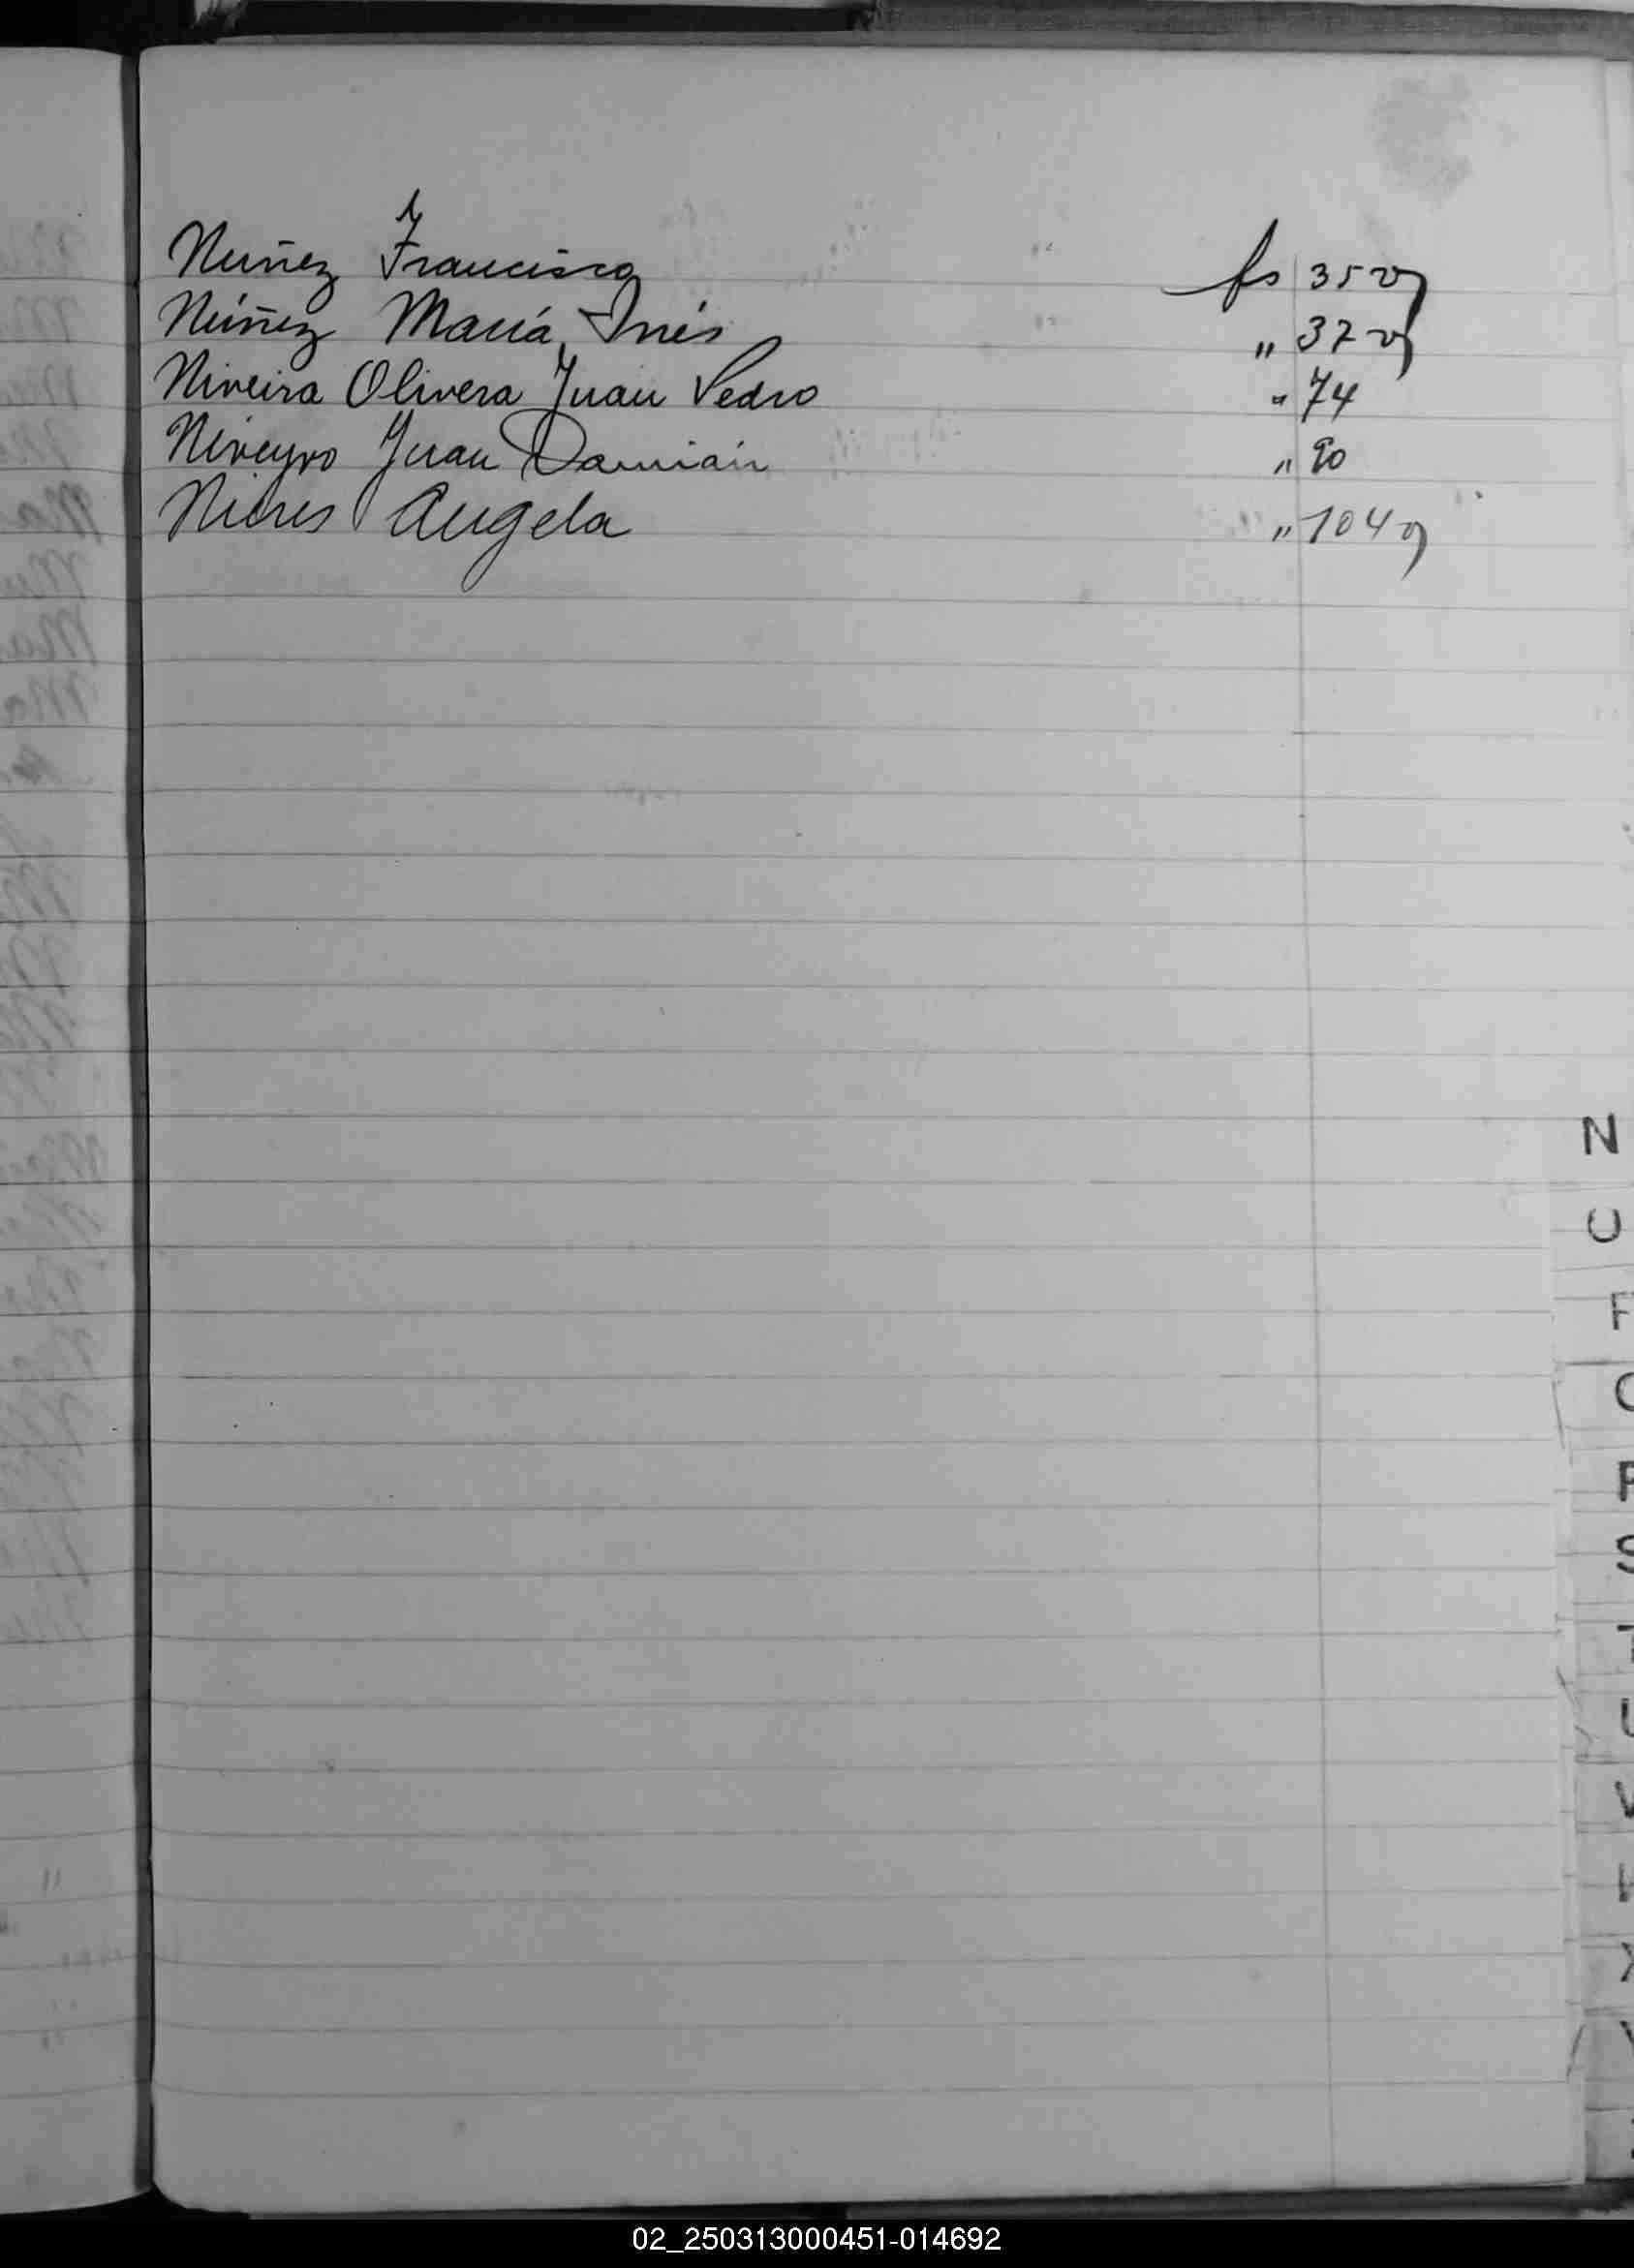 Nuñez Francisco fs 35 v
Núñez María Inés " 37 v
Niveira Olivera Juan Pedro " 74
Niveyro Juan Damián " 90
Angela " 104 v
N
O
S
T
U
V
X
02_250313000451-014692